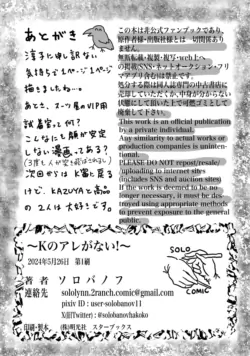 あとがき
淳子に申し訳ない
気持ちで1ページ1ページ
描きましたね…
あと、スーツ屋のVIP用
試着室って何？
こんなにも顔が安定
しない漫画ってある？
次回からはK富と高
けど、KAZUYAと高品
の2人は大好きです。
この本は非公式ファンブックであり、
原作者様・出版社様とは一切関係あり
ません。
無断転載・複製・複写・web上へ
の掲載(SNS・ネットオークション・フリ
マアプリ含む)は禁止です。
処分する際は同人誌専門の中古書店に
売却していただくか、中身が分からない
状態にして頂いた上で可燃ゴミとして
廃棄して下さい。
This work is an official publication
by a private individual.
Any similarity to actual works or
production companies is uninten-
tional.
PLEASE DO NOT repost/resale/
/uploading to internet sites
(includes SNS and auction sites)
If the work is deemed to be no
longer necessary, it must be des-
troyed using appropriate methods
to prevent exposure to the general
public.
〜Kのアレがない!〜
2024年5月26日 第1刷
著者 ソロバノフ
連絡先 sololynn.2ranch.comic@gmail.com
pixiv ID : user-solobanov11
X(旧Twitter) : @solobanovhakoko
印刷・製本 (株)明光社 スターブックス
SOLO
COMIC